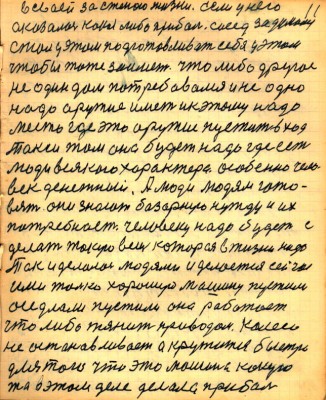 всвоей застенои жизни. если унего 11
оказался какой либо прибал. сосед задумалы
стал уэтом подготовливат себя уэтом
чтобы тоже заимет. что либо другое
не один дом потребовался и не одно
надо оружие имет и кэтому надо
место где это оружие пуститьвход
Такси там она будет надо где ест
люди всякого характера. особенно чело-
век денетный. А люди людям гото-
вят. они знают базарную нужду и их
потребност. человеку надо будет с
делат такую вещ которая вжизни надо
Так и делалос людями и делается сейчас
или толко хорошую машину пустим
оседлали пустили она работает
что либо тянит приводом. Колесо
не останавливает а крутится быстро
для того что это машина какую
та вэтом деле делала прибал